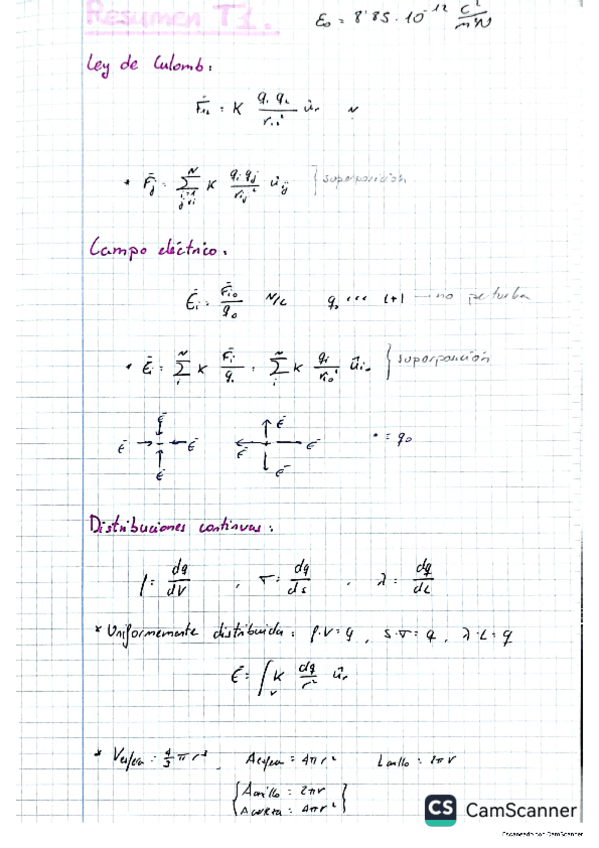 Resumen T1.
ε₀ = 8'85 · 10⁻¹² C²/m²N
Ley de Culomb:
F̄₁₂ = K q₁ q₂ / r₁₂² ūr N
* F̄j = Σ K qi qj / rij² ūij } superposición
Campo eléctrico:
Ēi = F̄i0 / q0 N/C q0 ... (+) → no perturba
* Ēi = Σ K F̄i / q = Σ K qi / ri0² ūi0 } superposición
Ē Ē Ē Ē Ē Ē Ē Ē • = q0
Distribuciones continuas:
ρ = dq/dV , σ = dq/ds , λ = dq/dL
* Uniformemente distribuida: ρ·V = q , S·σ = q , λ·L = q
Ē = ∫v K dq/r² ūr
* Vesfera = 4/3 π r³ , Aesfera = 4πr² Lanillo = 2πr
{ Aanillo = 2πr
Acorteza = 4πr² }
CS CamScanner
Escaneado con CamScanner